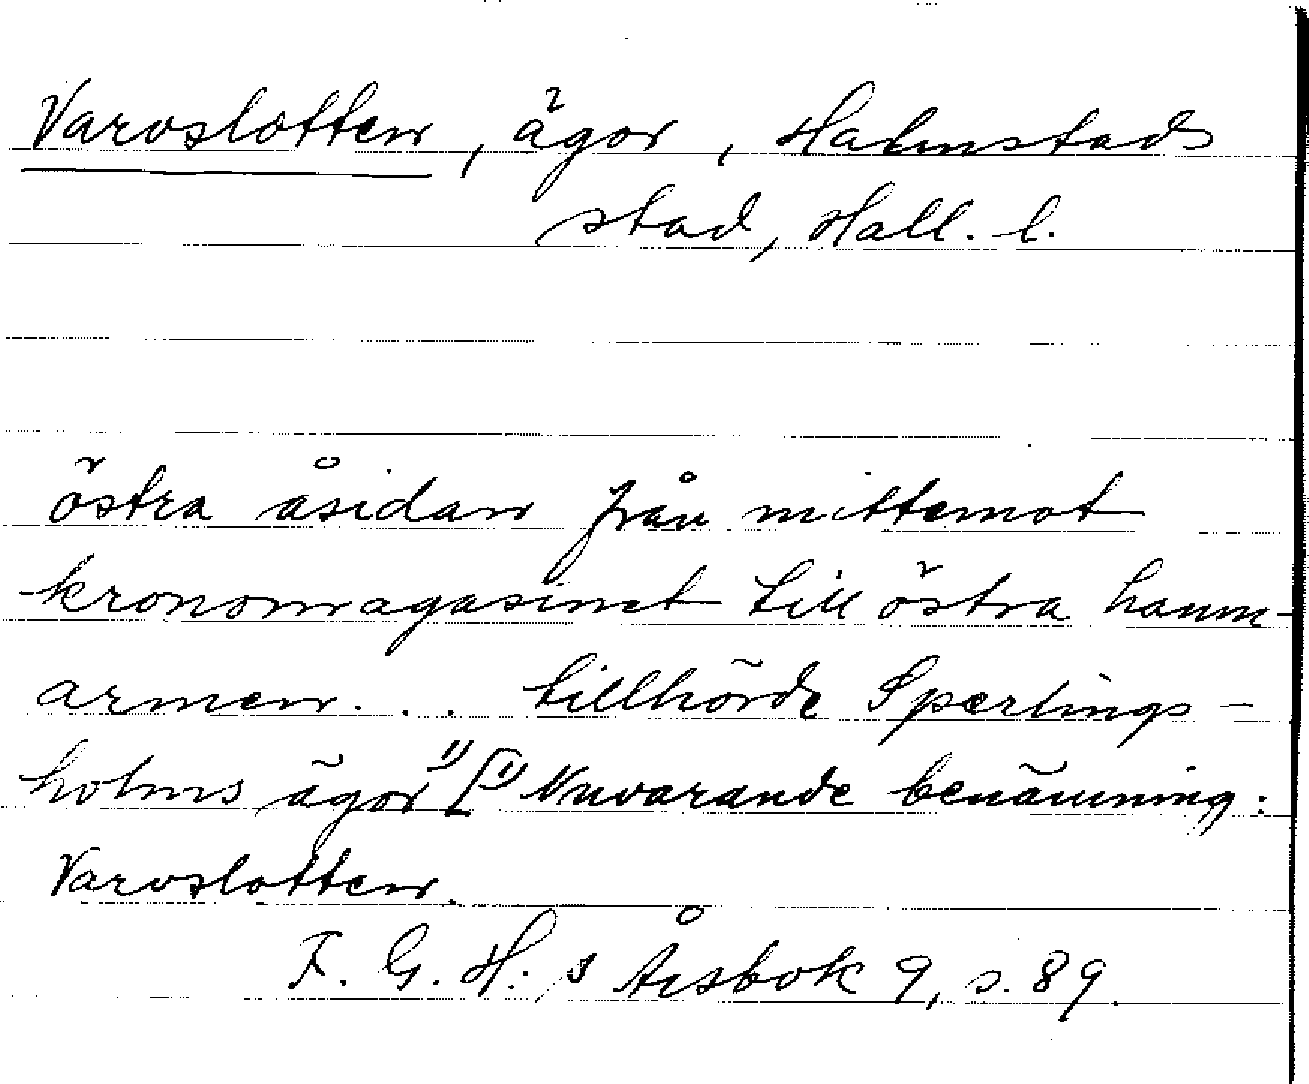 Varvslotten, ägor, Halmstads
stad, Hall. l.
östra åsidan från mittemot
kronomagasinet till östra hamn-
armen... tillhörde Sperlings-
holms ägor 1) [1) Nuvarande benämning:
Varvslotten.
F. G. H:s Årsbok 9, s. 89.